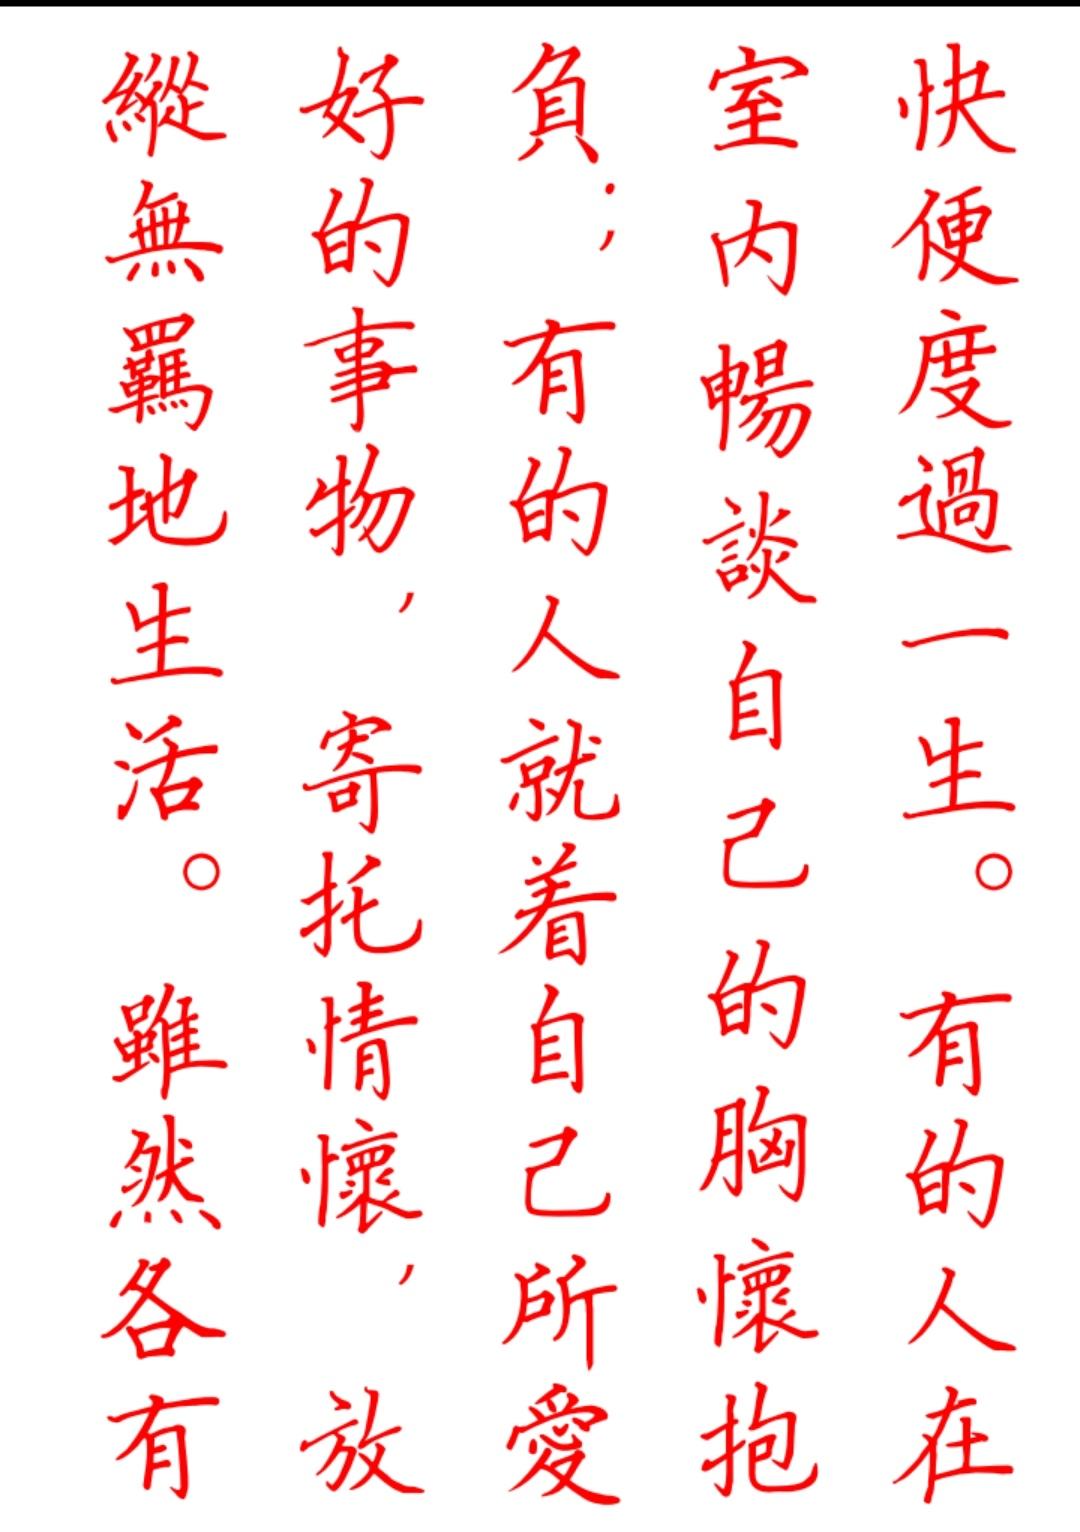 快便度過一生。有的人在
室内暢談自己的胸懷抱
負；有的人就着自己所愛
好的事物，寄托情懷，放
縱無羈地生活。雖然各有